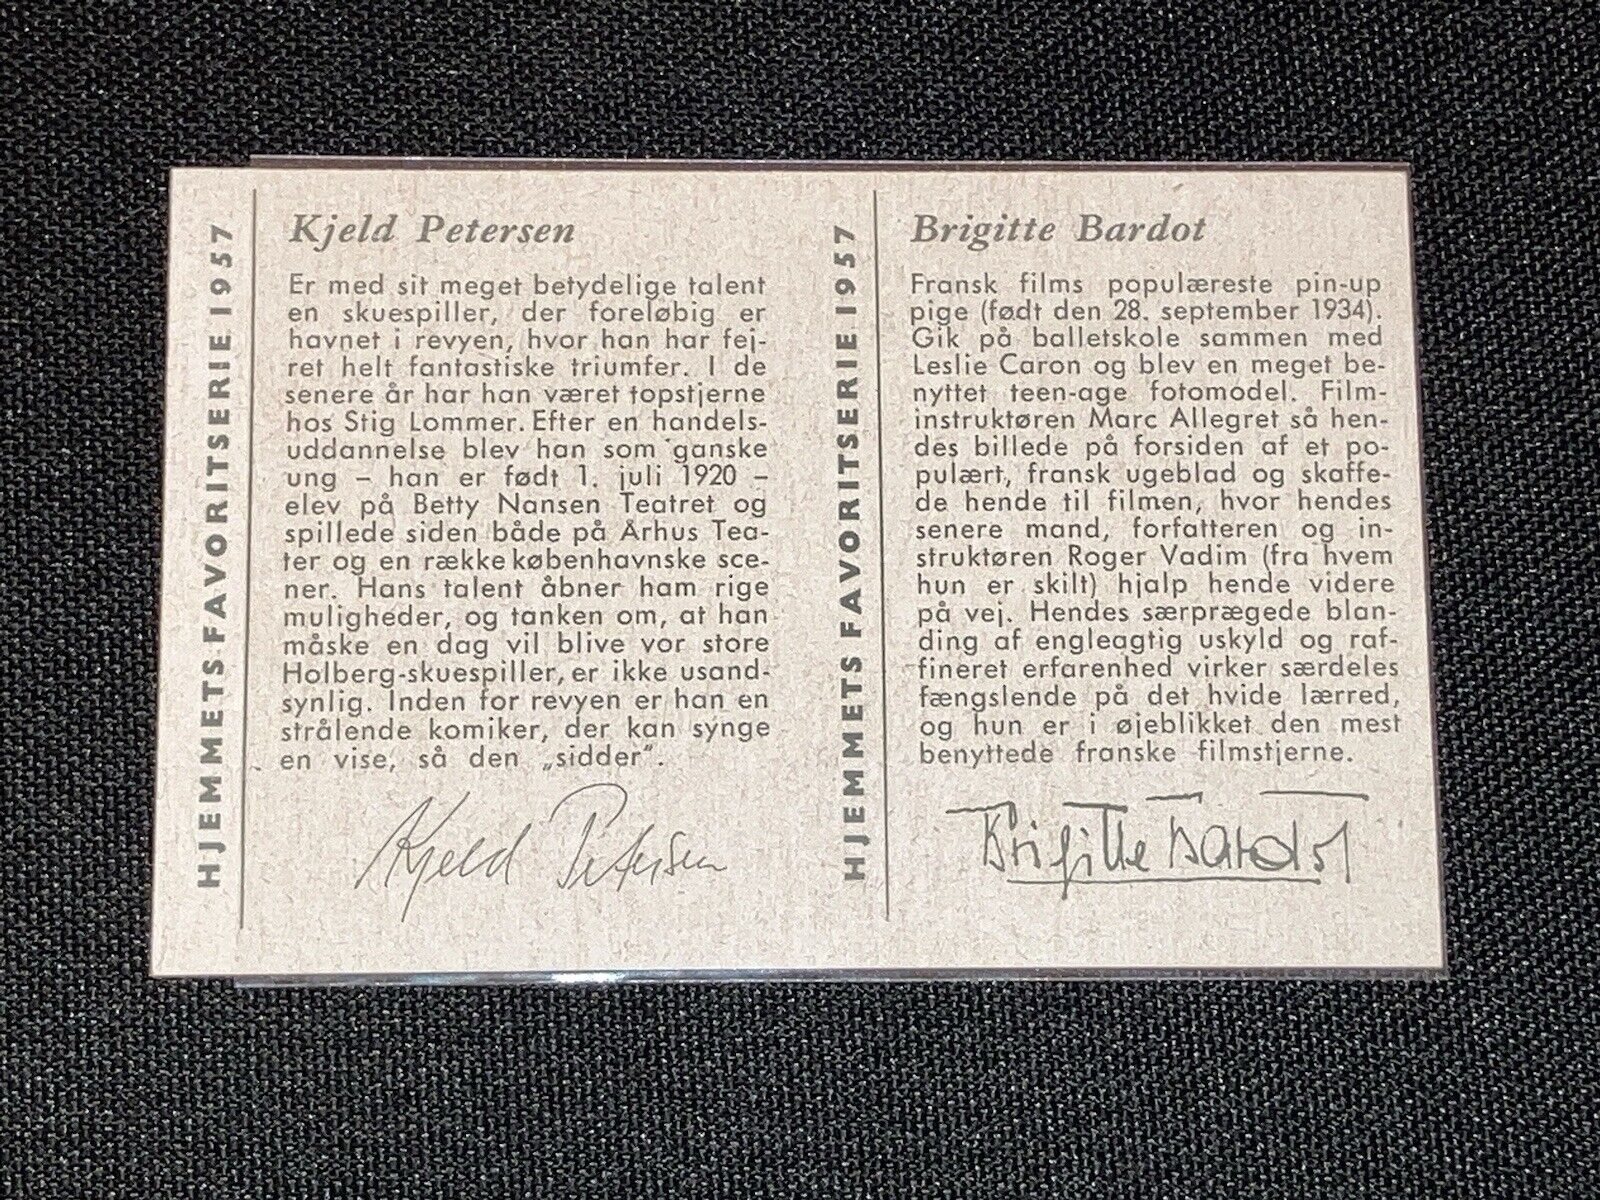 HJEMMETS FAVORITSERIE 1957
Kjeld Petersen
Er med sit meget betydelige talent
en skuespiller, der foreløbig er
havnet i revyen, hvor han har fej-
ret helt fantastiske triumfer. I de
senere år har han været topstjerne
hos Stig Lommer. Efter en handels-
uddannelse blev han som ganske
ung – han er født 1. juli 1920 –
elev på Betty Nansen Teatret og
spillede siden både på Århus Tea-
ter og en række københavnske sce-
ner. Hans talent åbner ham rige
muligheder, og tanken om, at han
måske en dag vil blive vor store
Holberg-skuespiller, er ikke usand-
synlig. Inden for revyen er han en
strålende komiker, der kan synge
en vise, så den „sidder“.
Kjeld Petersen
HJEMMETS FAVORITSERIE 1957
Brigitte Bardot
Fransk films populæreste pin-up
pige (født den 28. september 1934).
Gik på balletskole sammen med
Leslie Caron og blev en meget be-
nyttet teen-age fotomodel. Film-
instruktøren Marc Allegret så hen-
des billede på forsiden af et po-
pulært, fransk ugeblad og skaffe-
de hende til filmen, hvor hendes
senere mand, forfatteren og in-
struktøren Roger Vadim (fra hvem
hun er skilt) hjalp hende videre
på vej. Hendes særprægede blan-
ding af engleagtig uskyld og raf-
fineret erfarenhed virker særdeles
fængslende på det hvide lærred,
og hun er i øjeblikket den mest
benyttede franske filmstjerne.
Brigitte Bardot